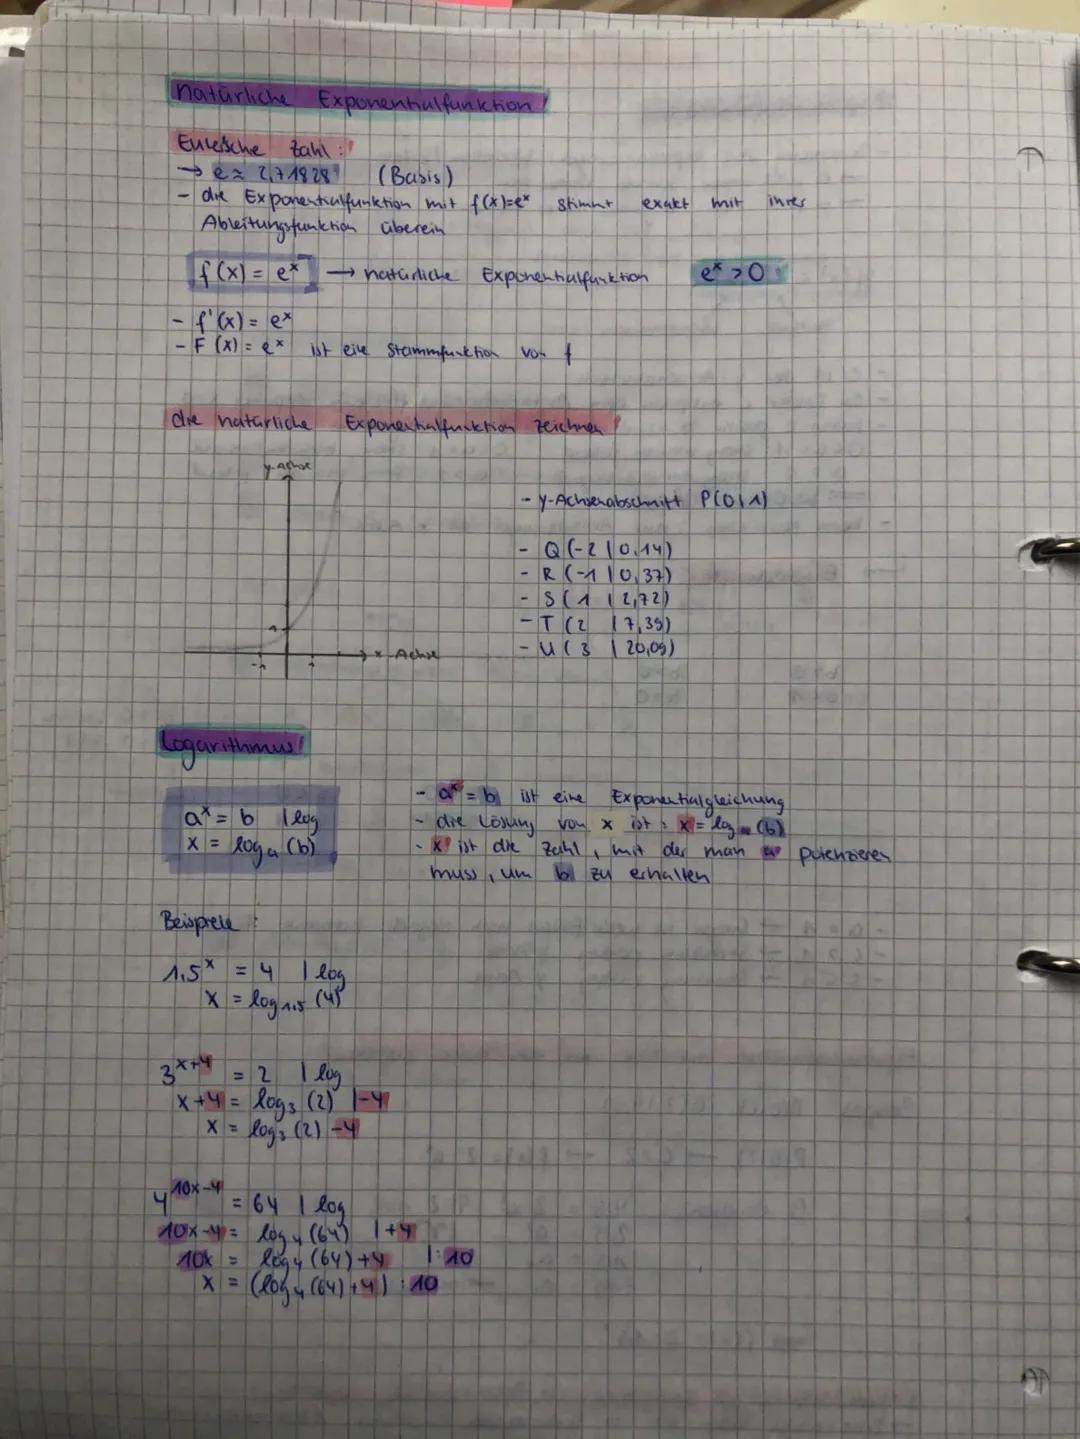 natürliche Exponentialfunktion
Eulersche Zahl:
→ e ≈ 2,71828 (Basis)
- die Exponentialfunktion mit f(x)=eˣ stimmt exakt mit ihrer
Ableitungsfunktion überein
f(x) = eˣ → natürliche Exponentialfunktion eˣ > 0
- f'(x) = eˣ
- F(x) = eˣ ist eine Stammfunktion von f
die natürliche Exponentialfunktion zeichnen
y-Achse
- y-Achsenabschnitt P(0|1)
- Q(-2|0,14)
- R(-1|0,37)
- S(1|2,72)
- T(2|7,39)
- U(3|20,09)
1
x-Achse
-1 1
Logarithmus
aˣ = b | log
x = logₐ(b)
- aˣ = b ist eine Exponentialgleichung
- die Lösung von x ist: x = logₐ(b)
- x ist die Zahl, mit der man a potenzieren
muss, um b zu erhalten
Beispiele:
1,5ˣ = 4 | log
x = log₁,₅(4)
3ˣ⁺⁴ = 2 | log
x+4 = log₃(2) |-4
x = log₃(2) -4
4¹⁰ˣ⁻⁴ = 64 | log
10x-4 = log₄(64) |+4
10x = log₄(64)+4 |:10
x = (log₄(64)+4) : 10